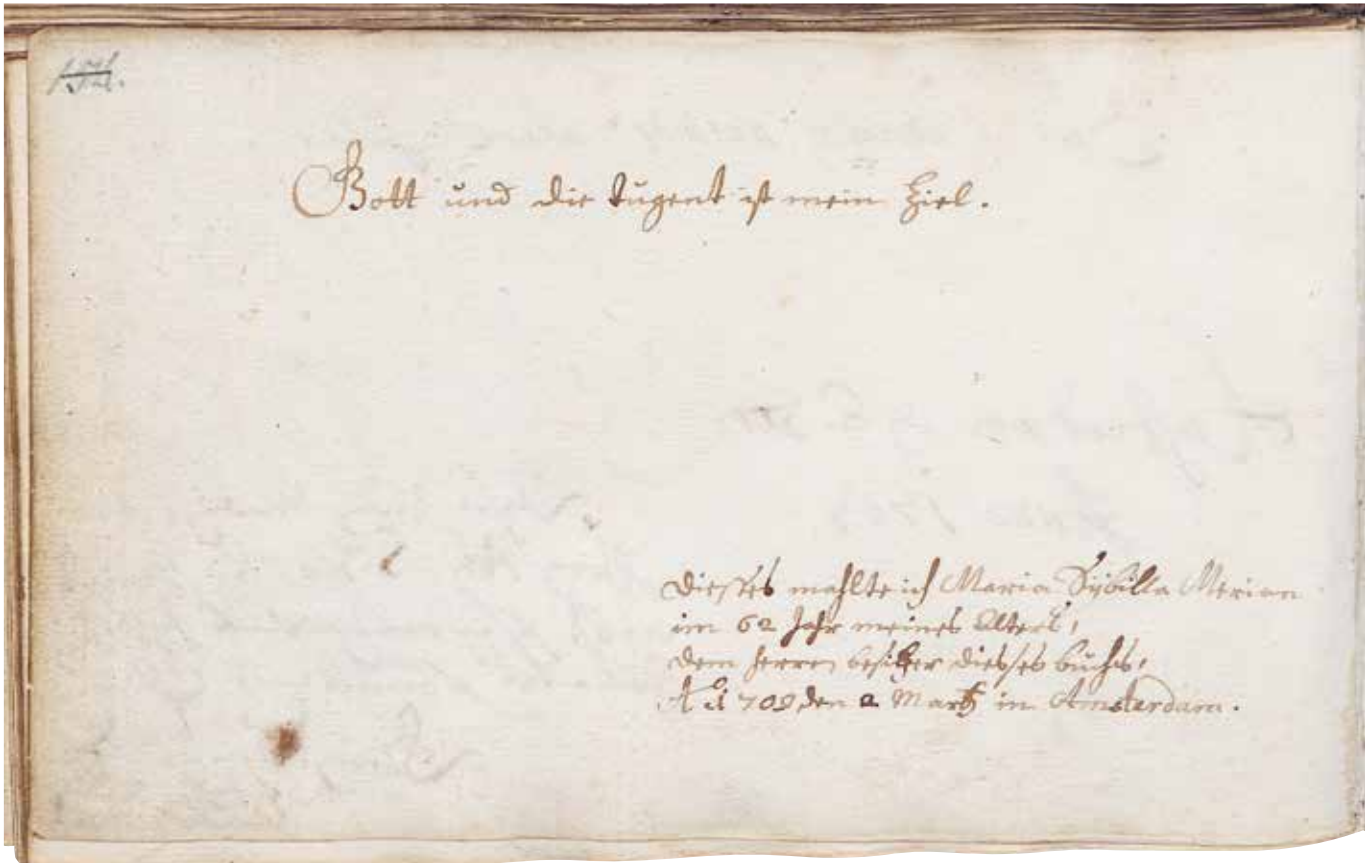 Gott und die tugent ist mein Ziel.
Diesses mahlte ich Maria Sybilla Merian
im 62 Jahr meines alters,
dem herren besitzer diesses buchs,
Ao 1709 den 2 Martz in Amsterdam.